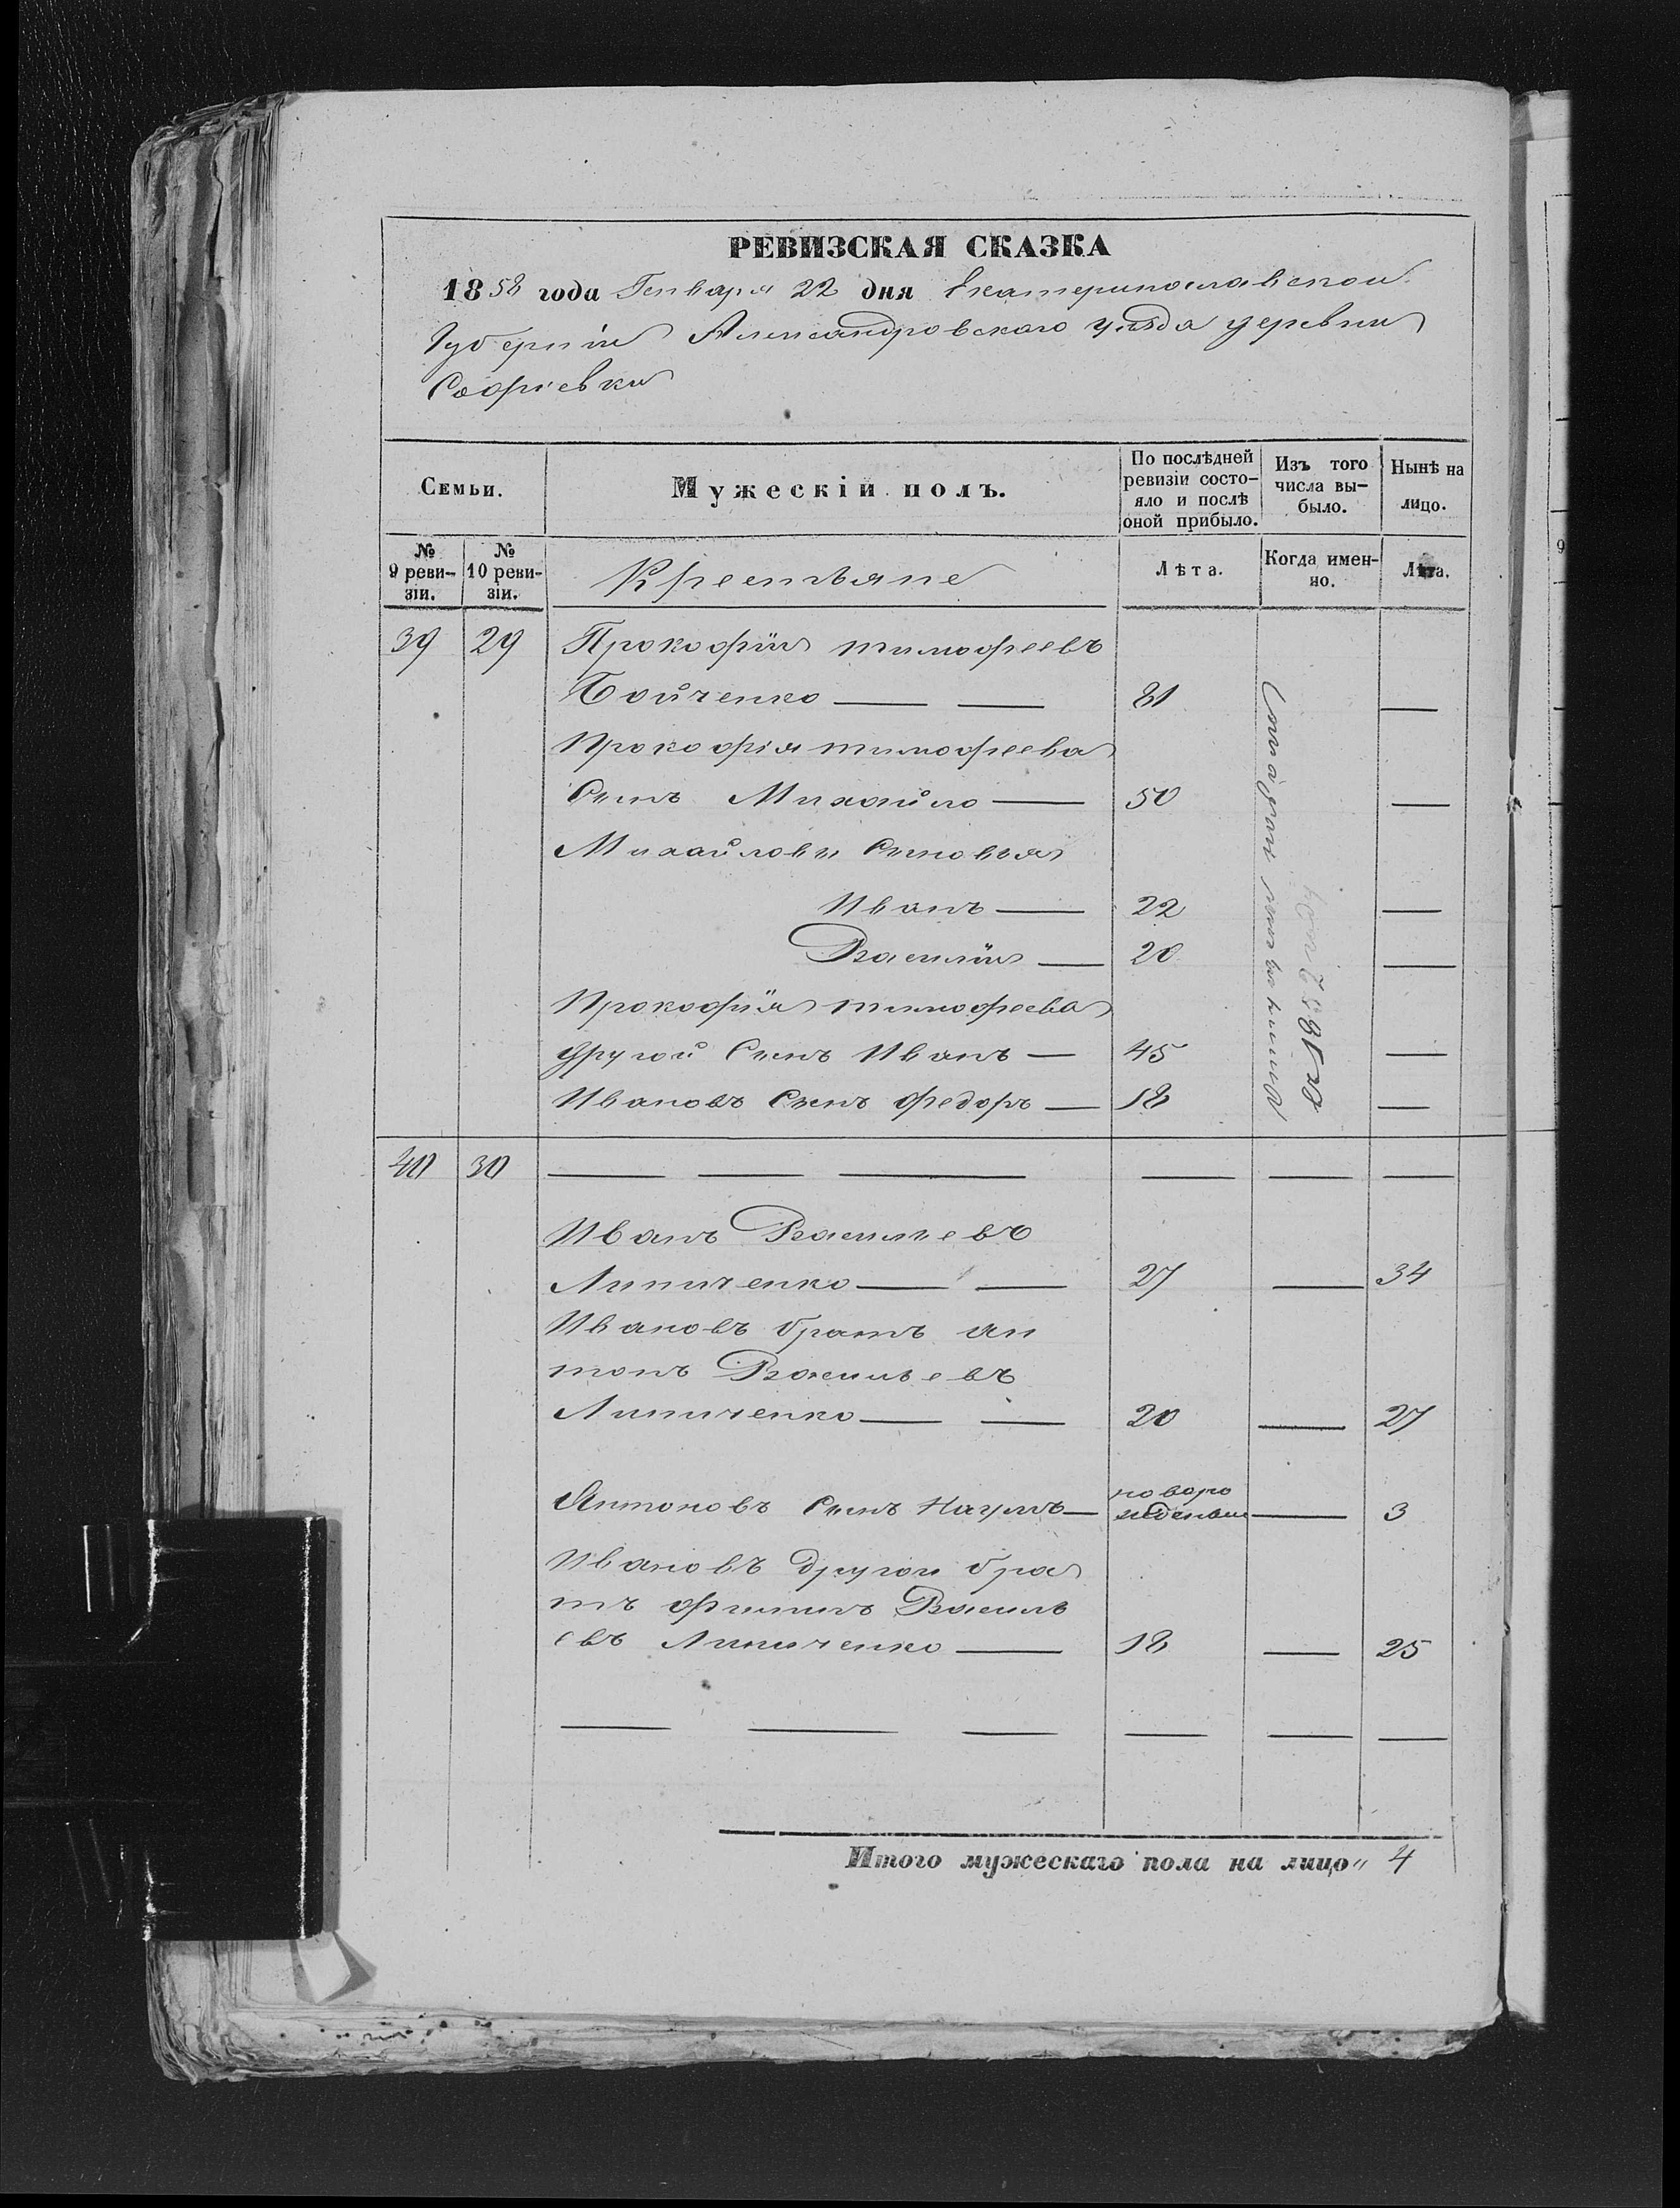 РЕВИЗСКАЯ СКАЗКА
1858 года Генваря 22 дня Екатеринославской
Губерніи Александровского уѣзда деревни
Софіевки
Семьи.
Мужескій полъ.
По послѣдней
ревизіи состо-
яло и послѣ
оной прибыло.
Изъ того
числа вы-
было.
Нынѣ на
лицо.
№
9 реви-
зіи.
№
10 реви-
зіи.
Крестьяне
Лѣта.
Когда имен-
но.
Лѣта.
39 29 Прокофій тимофеевъ
Бойченко — — 81 —
Прокофія тимофеева
Сынъ Михайло — 50 —
Михайловы Сыновья
Иванъ — 22 —
Василій — 20 —
Прокофія тимофеева
другой Сынъ Иванъ — 45 —
Ивановъ Сынъ Федоръ — 18 —
въ 1852 году
40 30 — — — — — —
Иванъ Васильевъ
Липиченко — — 27 — 34
Ивановъ братъ ан
тонъ Васильевъ
Липиченко — — 20 — 27
Антоновъ Сынъ Наумъ — новоро
жденный — 3
Ивановъ другой бра
тъ Филипъ Василь
евъ Липиченко — 18 — 25
— — — — — —
Итого мужескаго пола на лицо „ 4
9